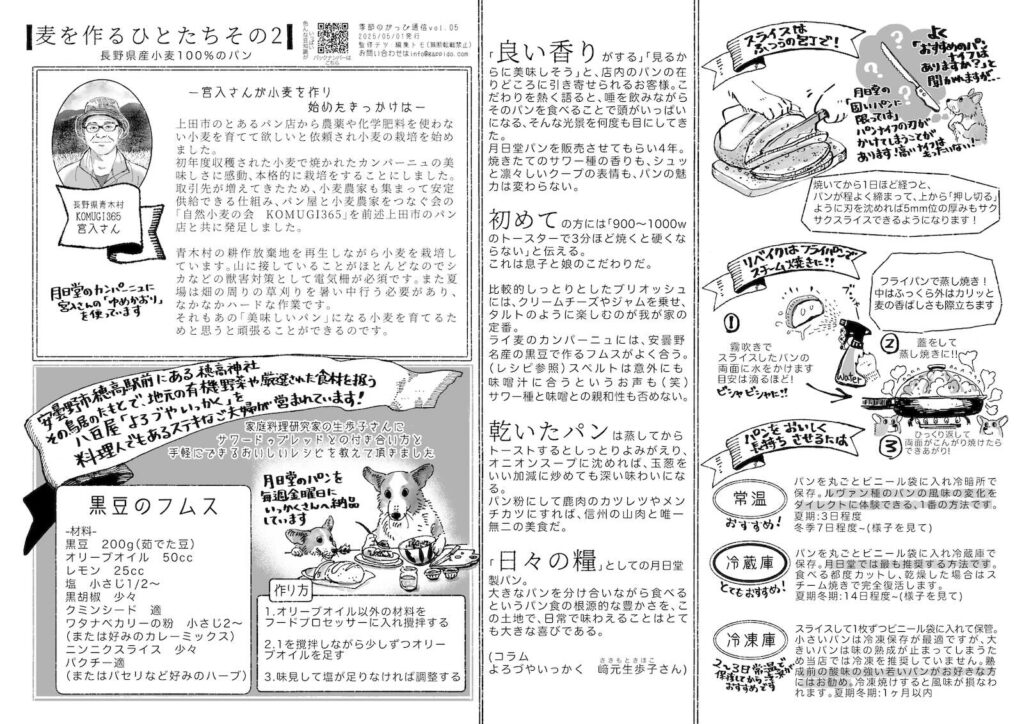 麦を作るひとたちその2
長野県産小麦100%のパン
色んな豆知識が
いっぱい
バックナンバーは
こちら
季節のがっぴ通信vol.05
2025/05/01発行
監修テツ 編集トモ(無断転載禁止)
お問い合わせはinfo@gappido.com
ー宮入さんが小麦を作り
始めたきっかけはー
上田市のとあるパン店から農薬や化学肥料を使わな
い小麦を育てて欲しいと依頼され小麦の栽培を始め
ました。
初年度収穫された小麦で焼かれたカンパーニュの美
味しさに感動、本格的に栽培をすることにしました。
取引先が増えてきたため、小麦農家も集まって安定
供給できる仕組み、パン屋と小麦農家をつなぐ会の
「自然小麦の会 KOMUGI365」を前述上田市のパン
店と共に発足しました。
青木村の耕作放棄地を再生しながら小麦を栽培し
ています。山に接していることがほとんどなのでシ
カなどの獣害対策として電気柵が必須です。また夏
場は畑の周りの草刈りを暑い中行う必要があり、
なかなかハードな作業です。
それもあの「美味しいパン」になる小麦を育てるた
めと思うと頑張ることができるのです。
長野県青木村
KOMUGI365
宮入さん
月日堂のカンパーニュに
宮入さんの「ゆめかおり」
を使っています
安曇野市穂高駅前にある穂高神社
その鳥居のたもとで、地元の有機野菜や厳選された食材を扱う
八百屋「よろづやいっかく」を
料理人でもあるステキなご夫婦が営まれています!
家庭料理研究家の生歩子さんに
サワードゥブレッドとの付き合い方と
手軽にできるおいしいレシピを教えて頂きました
黒豆のフムス
-材料-
黒豆 200g(茹でた豆)
オリーブオイル 50cc
レモン 25cc
塩 小さじ1/2～
黒胡椒 少々
クミンシード 適
ワタナベカリーの粉 小さじ2～
(または好みのカレーミックス)
ニンニクスライス 少々
パクチー適
(またはパセリなど好みのハーブ)
月日堂のパンを
毎週金曜日に
いっかくさんへ納品
しています
作り方
1.オリーブオイル以外の材料を
フードプロセッサーに入れ攪拌する
2.1を攪拌しながら少しずつオリー
ブオイルを足す
3.味見して塩が足りなければ調整する
「良い香りがする」「見るか
らに美味しそう」と、店内のパンの在
りどころに引き寄せられるお客様。こ
だわりを熱く語ると、唾を飲みながら
そのパンを食べることで頭がいっぱい
になる、そんな光景を何度も目にしてき
た。
月日堂パンを販売させてもらい4年。
焼きたてのサワー種の香りも、シュッ
と凛々しいクープの表情も、パンの魅
力は変わらない。
初めての方には「900～1000w
のトースターで3分ほど焼くと硬くな
らない」と伝える。
これは息子と娘のこだわりだ。
比較的しっとりとしたブリオッシュ
には、クリームチーズやジャムを乗せ、
タルトのように楽しむのが我が家の
定番。
ライ麦のカンパーニュには、安曇野
名産の黒豆で作るフムスがよく合う。
(レシピ参照)スペルトは意外にも
味噌汁に合うというお声も(笑)
サワー種と味噌との親和性も否めない。
乾いたパンは蒸してから
トーストするとしっとりよみがえり、
オニオンスープに沈めれば、玉葱をい
い加減に炒めても深い味わいにな
る。
パン粉にして鹿肉のカツレツやメン
チカツにすれば、信州の山肉と唯一
無二の美食だ。
「日々の糧」としての月日堂
製パン。
大きなパンを分け合いながら食べる
というパン食の根源的な豊かさを、こ
の土地で、日常で味わえることはとて
も大きな喜びである。
(コラム
よろづやいっかく 﨑元生歩子さん)
さきもときほこ
スライスは
ふつうの包丁で!
よく
「おすすめのパン
ナイフは
ありますか?」と
聞かれますが…
月日堂の
「固いパンに
限っては」
パンナイフの刃が
かけてしまうことが
あります!高いナイフは
もったいない!
焼いてから1日ほど経つと、
パンが程よく締まって、上から「押し切る」
ように刃を沈めれば5mm位の厚みもサク
サクスライスできるようになります!
リベイクはフライパンで
スチーム焼きに!!
フライパンで蒸し焼き!
中はふっくら外はカリッと
麦の香ばしさも際立ちます
①
霧吹きで
スライスしたパンの
両面に水をかけます
目安は滴るほど!
ビシャビシャに!!
water
②
蓋をして
蒸し焼きに!!
③
ひっくり返して
両面がこんがり焼けたら
できあがり!
パンをおいしく
長持ちさせるには
常温
おすすめ!
パンを丸ごとビニール袋に入れ冷暗所で
保存。ルヴァン種のパンの風味の変化を
ダイレクトに体験できる、1番の方法です。
夏期:3日程度
冬季7日程度～(様子を見て)
冷蔵庫
とてもおすすめ!
パンを丸ごとビニール袋に入れ冷蔵庫で
保存。月日堂では最も推奨する方法です。
食べる都度カットし、乾燥した場合はス
チーム焼きで完全復活します。
夏期冬期:14日程度～(様子を見て)
冷凍庫
2～3日常温で
保存してから冷凍が
おすすめです
スライスして1枚ずつビニール袋に入れて保管。
小さいパンは冷凍保存が最適ですが、大
きいパンは味の熟成が止まってしまうた
め当店では冷凍を推奨していません。熟
成前の酸味の強い若いパンがお好きな方
にはお勧め。冷凍焼けすると風味が損なわ
れます。夏期冬期:1ヶ月以内